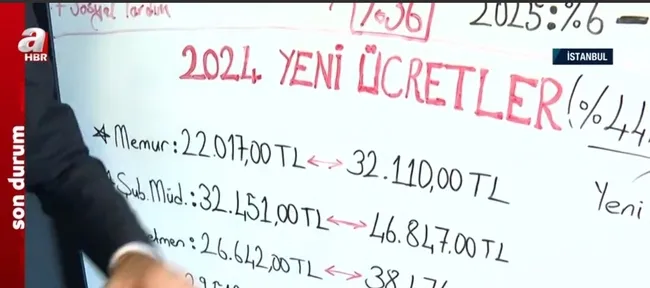 + Sosyal Yardım
%36
2025:%6 –
a
HBR
İSTANBUL
2024 YENİ ÜCRETLER (%44
* Memur: 22.017,00 TL ↔ 32.110,00 TL
Şub. Müd.: 32.451,00 TL ↔ 46.847.00 TL
Yeni
etmen: 26.642,00 TL ↔ 38.17
son durum